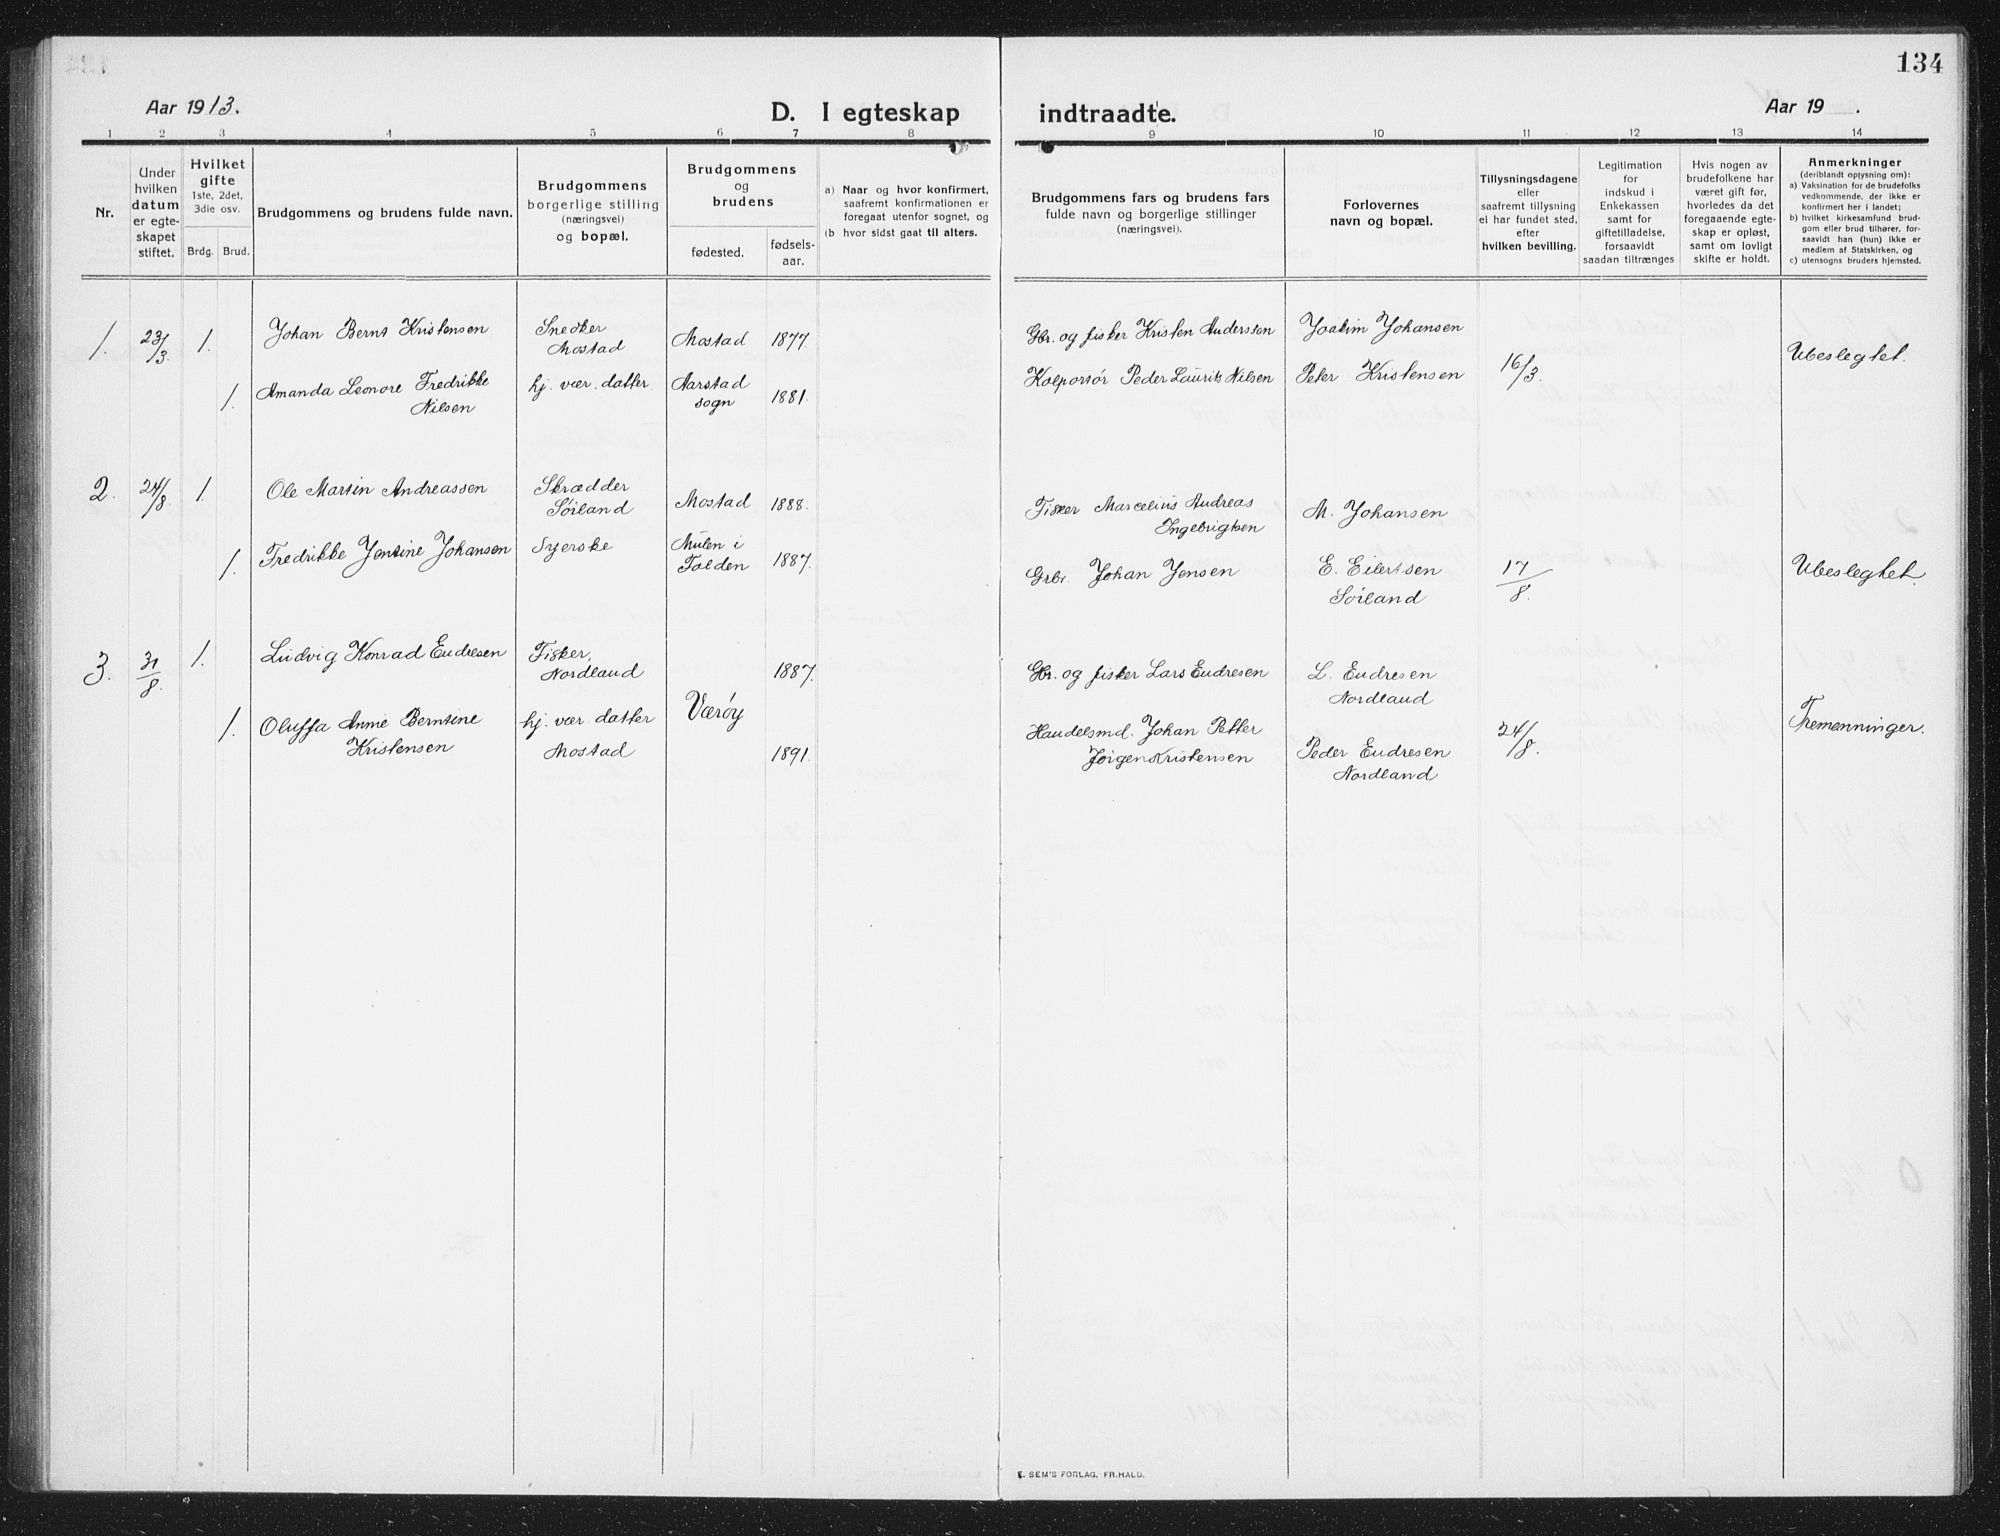 134
Aar 1913.
D. I egteskap indtraadte.
Aar 19 .
1 2 3 4 5 6 7 8 9 10 11 12 13 14
Nr.
Under hvilken datum er egte-skapet stiftet.
Hvilket gifte 1ste, 2det, 3die osv.
Brdg. Brud.
Brudgommens og brudens fulde navn.
Brudgommens borgerlige stilling (næringsvei) og bopæl.
Brudgommens og brudens
fødested.
fødsels-aar.
a) Naar og hvor konfirmert, saafremt konfirmationen er foregaat utenfor sognet, og
(b hvor sidst gaat til alters.
Brudgommens fars og brudens fars fulde navn og borgerlige stillinger (næringsvei).
Forlovernes navn og bopæl.
Tillysningsdagene eller saafremt tillysning ei har fundet sted, efter hvilken bevilling.
Legitimation for indskud i Enkekassen samt for giftetilladelse, forsaavidt saadan tiltrænges
Hvis nogen av brudefolkene har været gift før, hvorledes da det foregaaende egte-skap er opløst, samt om lovligt skifte er holdt.
Anmerkninger
(deriblandt oplysning om):
a) Vaksination for de brudefolks vedkommende, der ikke er konfirmert her i landet;
b) hvilket kirkesamfund brud-gom eller brud tilhører, for-saavidt han (hun) ikke er medlem av Statskirken, og
c) utensogns bruders hjemsted.
1. 23/3. 1. Johan Bernt Kristensen Snedker Mostad Mostad 1877. Gbr. og fisker Kristen Anderssen Joakim Johansen
1. Amanda Leonore Fredrikke Nilsen hj. vær. datter Aarstad sogn 1881. Kolportør Peder Laurits Nilsen Peter Kristensen 16/3. Ubeslegtet.
2. 24/8. 1. Ole Martin Andreassen Skrædder Sörland Mostad 1888. Fisker Marcelius Andreas Ingebrigtsen M. Johansen
1. Fredrikke Jentine Johansen Syerske Mulen i Folden 1887. Grbr. Johan Jensen E. Eilertsen Sörland 17/8. Ubeslegtet.
3. 31/8. 1. Ludvig Konrad Endresen Fisker, Nordland 1887. Gbr. og fisker Lars Endresen L. Endresen Nordland
Værøy
1. Oluffa Anne Berntine Kristensen hj. vær. datter Mostad 1891. Handelsmd. Johan Petter Jörgen Kristensen Peder Endresen Nordland 24/8. Tremenninger.
E. SEM'S FORLAG, FR.HALD.